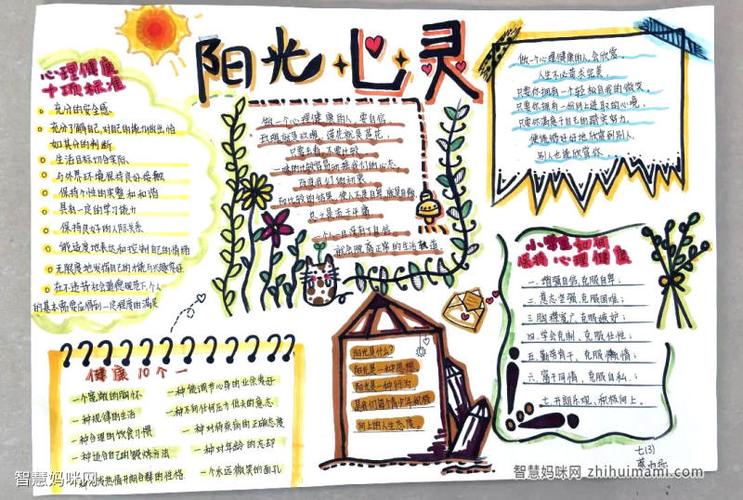 阳光心灵
心理健康
十项标准
充分的安全感
充分了解自己,对自己的能力做出恰
如其分的判断
生活目标切合实际
与外界环境保持良好接触
保持个性的完整和和谐
具有一定的学习能力
保持良好的人际关系
能适度地表达和控制自己的情绪
在不违背社会道德规范下,个人
的基本需要应得到一定程度的满足
做一个心理健康的人,要自信
玫瑰就是玫瑰,莲花就是莲花,
只要去看,不要比较
做一个心理健康的人,会欣赏
人生不必苛求完美
只要你拥有一个轻松自我的微笑
只要你拥有一份向上进取的心境
只要你满意于自己的踏实努力
便能够好好地欣赏到别人
别人也能欣赏你
小学生如何
保持心理健康
一.增强自信,克服自卑;
二.意志坚强,克服困难;
三.胸襟宽广,克服嫉妒;
四.学会克制,克服任性;
五.勤劳肯干,克服懒惰;
六.富于同情,克服自私;
七.开朗乐观,积极向上。
健康10个一
一个宽敞的胸怀
一种规律的生活
一种合理的饮食习惯
一种适合自己的锻炼方法
一种能调节心身的业余爱好
一种不向任何压力低头的意志
一种对待疾病的正确态度
一种对年龄的忘却
一个永远微笑的面孔
阳光是什么?
阳光是一种思想
阳光是一种行为
是我们当个青少年积极
向上的人生态度
七(3)
智慧妈咪网
智慧妈咪网 zhihuimami.com